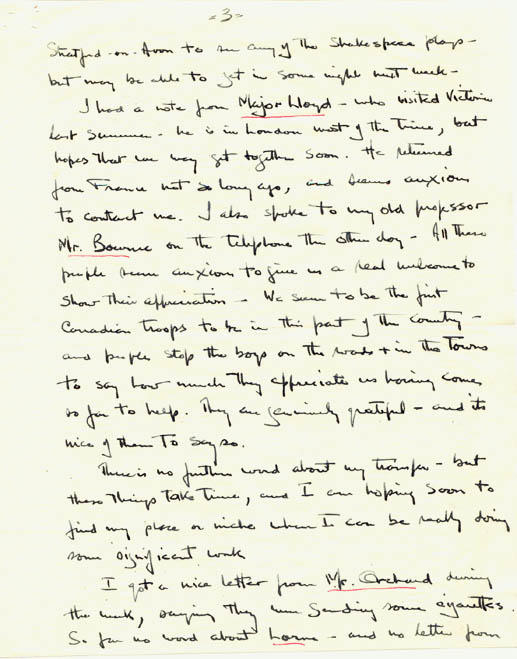 = 3 =
Stratford-on-Avon to see any of the Shakespeare plays -
but may be able to get in some night next week -
I had a note from Major Lloyd - who visited Victoria
last summer - he is in London most of the time, but
hopes that we may get together soon. He returned
from France not so long ago, and seems anxious
to contact me. I also spoke to my old professor
Mr. Bourne on the telephone the other day - All these
people seem anxious to give us a real welcome to
show their appreciation - We seem to be the first
Canadian troops to be in this part of the country -
and people stop the boys on the roads + in the Towns
to say how much they appreciate us having come
so far to help. They are genuinely grateful - and its
nice of them To say so.
There is no further word about my transfer - but
these Things Take Time, and I am hoping soon to
find my place or niche when I can be really doing
some significant work
I got a nice letter from Mr. Orchard during
the week, saying they were sending some cigarettes.
So far no word about Lorne - and no letter from